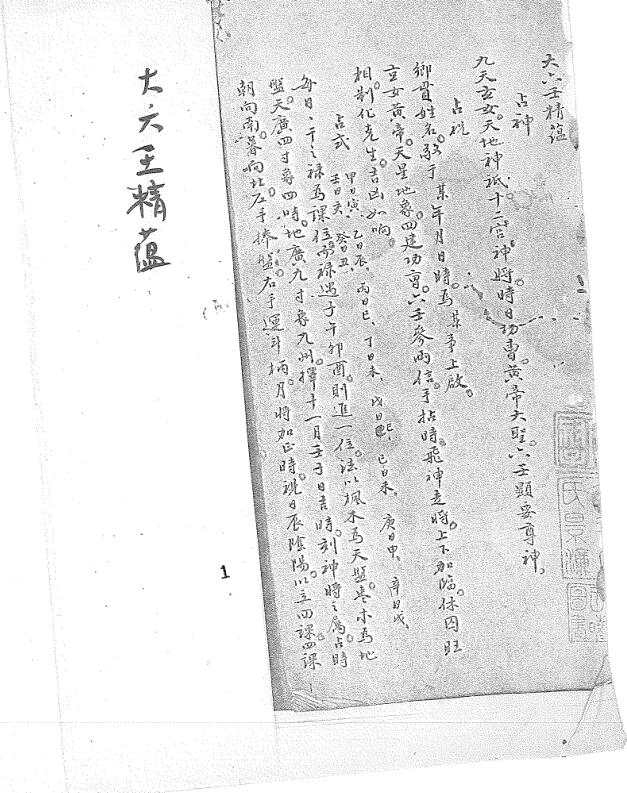 大六壬精蕴
占神
九天玄女。天地神祇十二宫神將時日功曹。黄帝大聖。六壬顯要尊神、
占祝
鄉貫姓名。敬于某年月日時。爲某事上啟。
玄女黄帝。天星地象。四建功曹。六壬參両信手拈時。飛神走將。上下加臨。休囚旺
相制化尅生。吉凶如响。
占式
甲日寅、乙日辰、丙日巳、丁日未、戊日巳、己日未、庚日申、辛日戌、
壬日亥、癸日丑、
每日、干之禄爲課位。而禄遇子午卯酉。則進一位。法以楓木爲天盤棗木爲地
盤。天廣四寸象四時。地廣九寸象九州。擇十一月壬子日吉時。刻神將之属占時
朝向南。暮向北。左手捧盤。右手運斗柄月將加正時。視日辰陰陽。以立四課四課
大六壬精蕴
1